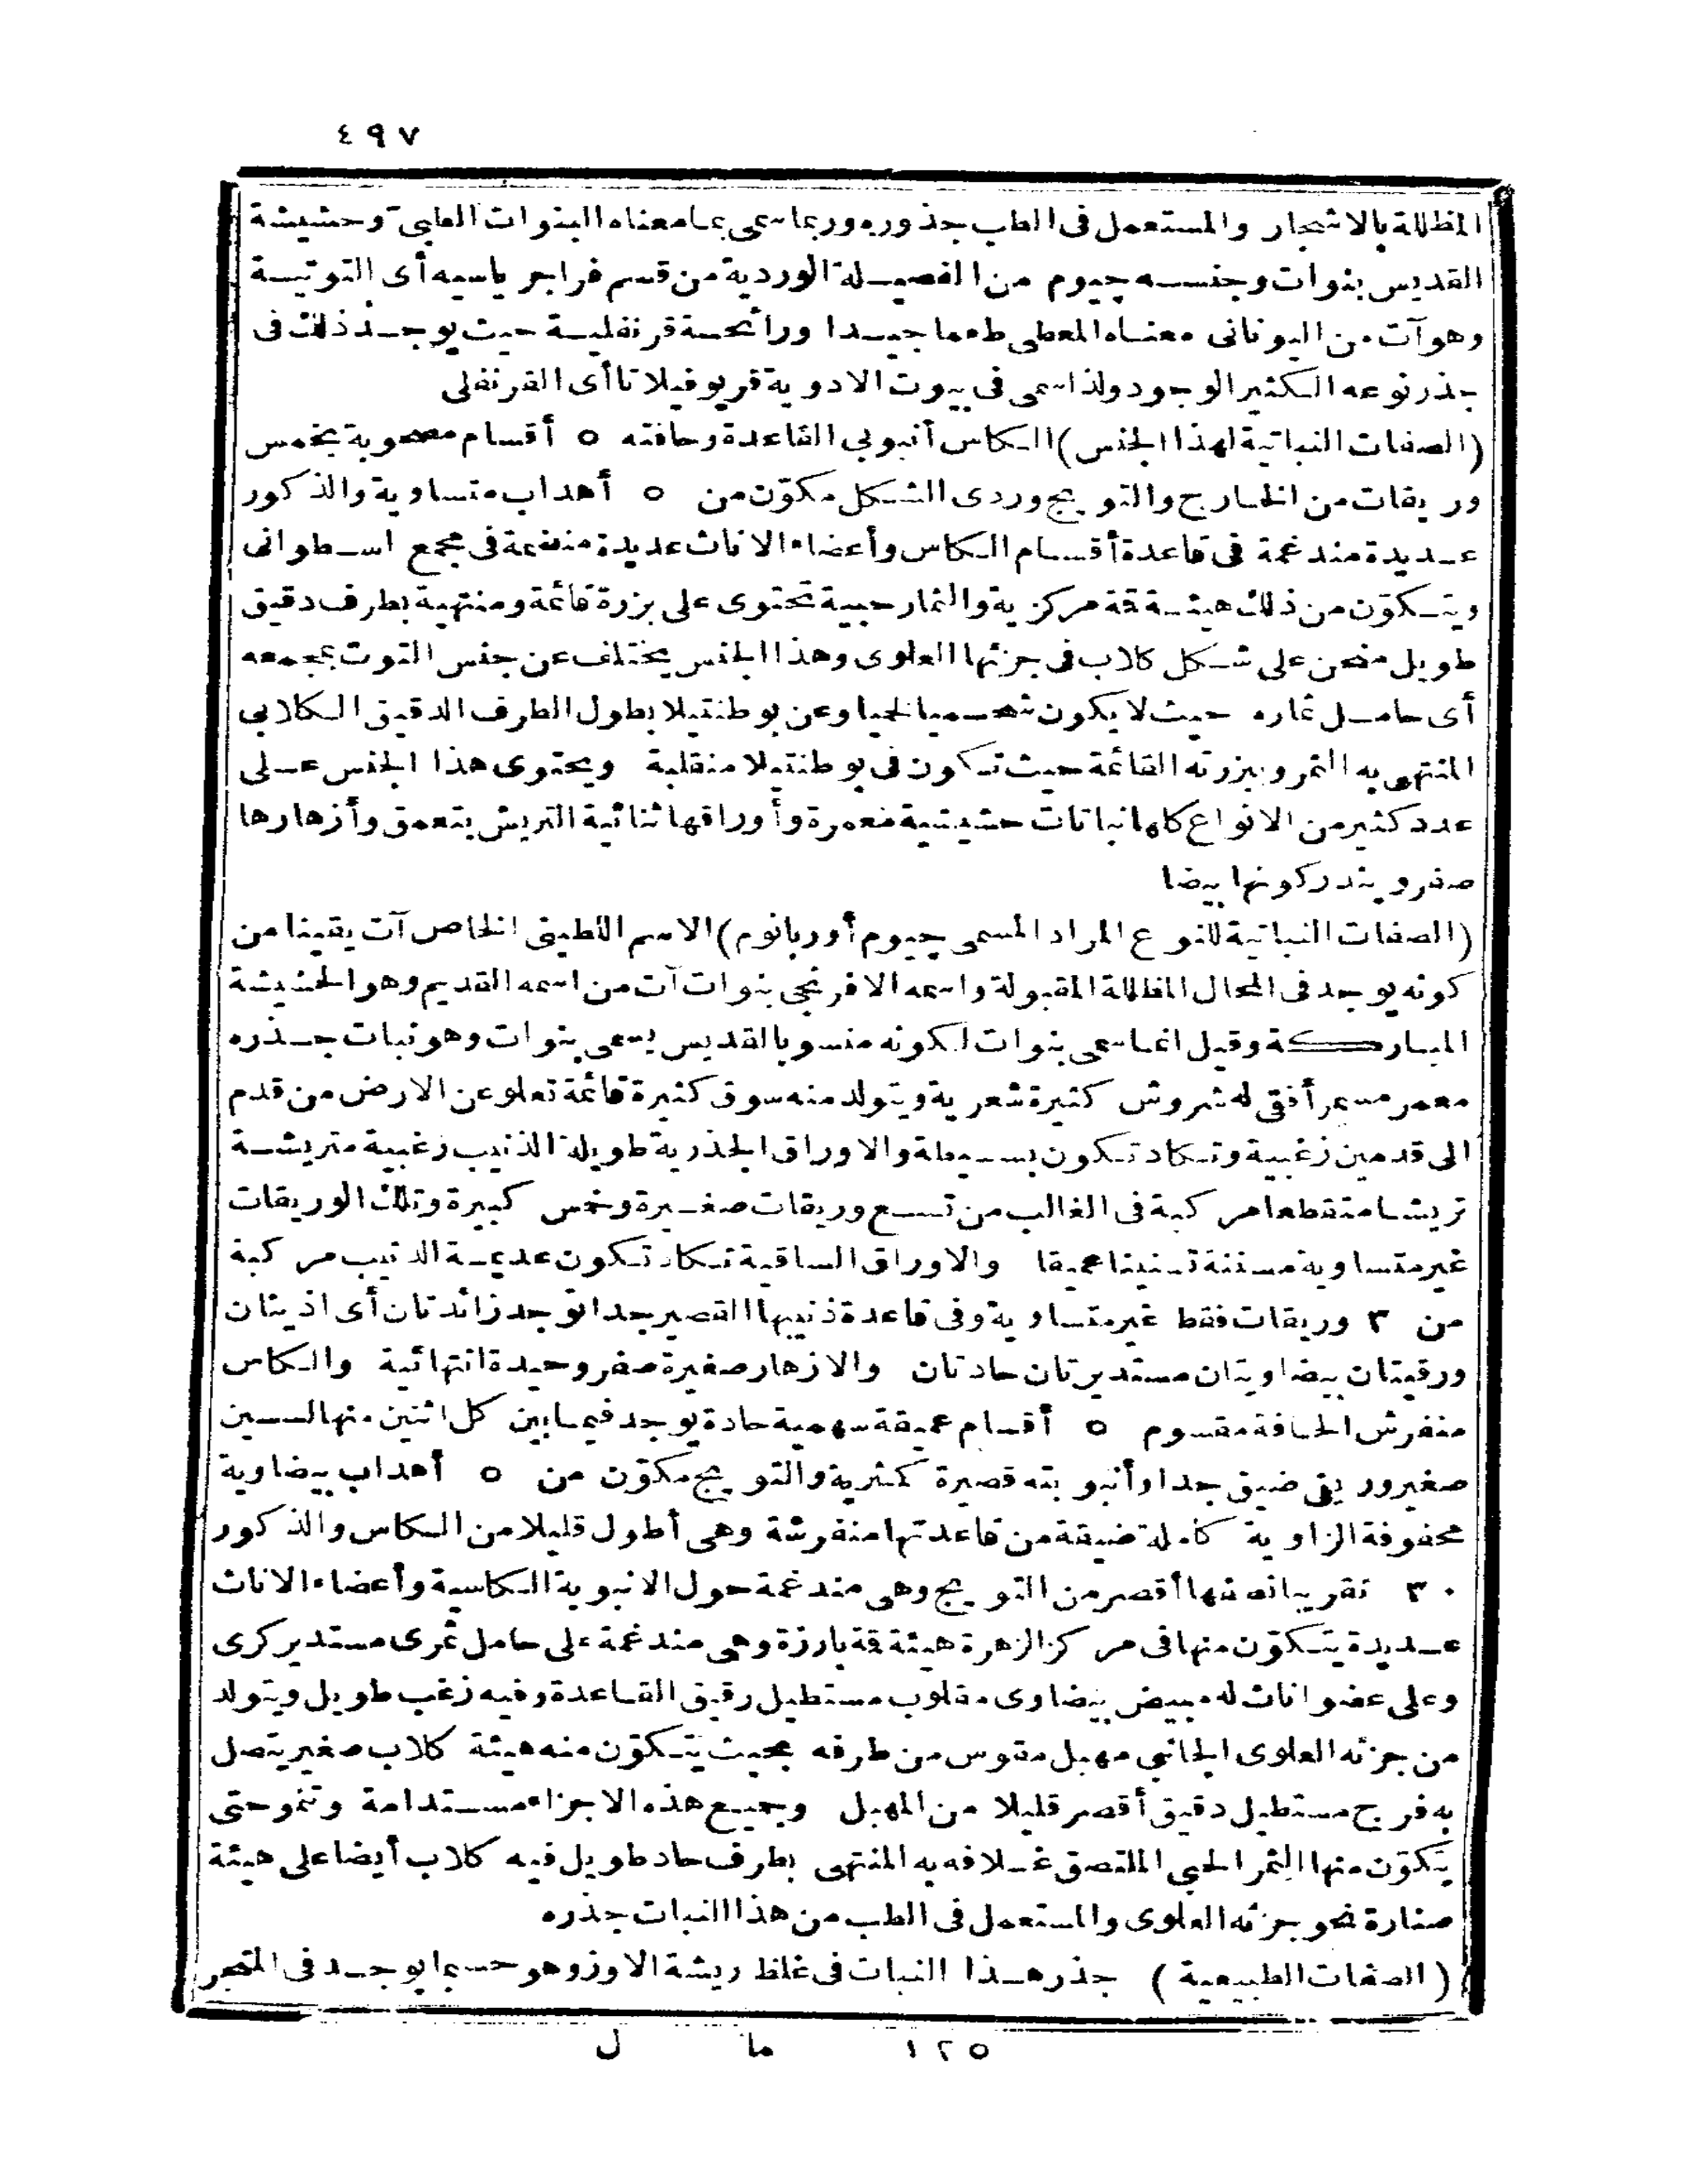 ٤٩٧
المظللة بالاشجار والمستعمل فى الطب جذوره وربما سمى بما معناه البنوات الطبى وحشيشة
القديس بنوات وجنسه جيوم من الفصيلة الوردية من قسم فراجرياسيه أى التوتية
وهو آت من اليونانى معناه المعطى طعما جيدا ورائحة قرنفلية حيث يوجد ذلك فى
جذر نوعه الكثير الوجود ولذا سمى فى بيوت الادوية قريوفيلاتا أى القرنفلى
(الصفات النباتية لهذا الجنس) الكاس أنبوبى القاعدة وحافته ٥ أقسام مصحوبة بخمس
وريقات من الخارج والتويج وردى الشكل مكوّن من ٥ أهداب متساوية والذكور
عديدة مندغمة فى قاعدة أقسام الكاس وأعضاء الاناث عديدة منضمة فى مجمع اسطوانى
ويتكوّن من ذلك هيئة قة مركزية والثمار حبية تحتوى على بزرة قائمة ومنتهية بطرف دقيق
طويل منحن على شكل كلاب فى جزئها العلوى وهذا الجنس يختلف عن جنس التوت بمجمعه
أى حامل ثماره حيث لا يكون شحميا لحميا وعن بوطنتيلا بطول الطرف الدقيق الكلابى
المنتهى به الثمر وببزرته القائمة حيث تكون فى بوطنتيلا منقلبة ويحتوى هذا الجنس على
عدد كثير من الانواع كلها نباتات حشيشية معمرة وأوراقها ثنائية التريش بتعمق وأزهارها
صفر ويندر كونها بيضا
(الصفات النباتية للنوع المراد المسمى جيوم أوربانوم) الاسم اللطينى الخاص آت يقينا من
كونه يوجد فى المحال المظللة المقبولة واسمه الافرنجى بنوات آت من اسمه القديم وهو الحشيشة
المباركة وقيل انما سمى بنوات لكونه منسوبا لقديس يسمى بنوات وهو نبات جذره
معمر مسمر أفقى له شروش كثيرة شعرية ويتولد منه سوق كثيرة قائمة تعلو عن الارض من قدم
الى قدمين زغبية وتكاد تكون بسيطة والاوراق الجذرية طويلة الذنيب زغبية متريشة
تريشا متقطعا مركبة فى الغالب من تسع وريقات صغيرة وخمس كبيرة وتلك الوريقات
غير متساوية مسننة تسنينا عميقا والاوراق الساقية تكاد تكون عديمة الذنيب مركبة
من ٣ وريقات فقط غير متساوية وفى قاعدة ذنيبها القصير جدا توجد زائدتان أى اذينتان
ورقيتان بيضاويتان مستديرتان حادتان والازهار صغيرة صفر وحيدة انتهائية والكاس
منفرش الحافة مقسوم ٥ أقسام عميقة سهمية حادة يوجد فيما بين كل اثنين منها لسين
صغير وريقى ضيق جدا وأنبوبته قصيرة كمثرية والتويج مكوّن من ٥ أهداب بيضاوية
محفوفة الزاوية كاملة ضيقة من قاعدتها منفرشة وهى أطول قليلا من الكاس والذكور
٣٠ تقريبا نصفها أقصر من التويج وهى مندغمة حول الانبوبة الكاسية وأعضاء الاناث
عديدة يتكوّن منها فى مركز الزهرة هيئة قة بارزة وهى مندغمة على حامل ثمرى مستدير كرى
وعلى عضو اناث له مبيض بيضاوى مقلوب مستطيل رقيق القاعدة وفيه زغب طويل ويتولد
من جزئه العلوى الجانبى مهبل مقوس من طرفه بحيث يتكوّن منه هيئة كلاب صغير يتصل
به فرج مستطيل دقيق أقصر قليلا من المهبل وجميع هذه الاجزاء مستدامة وتنمو حتى
يتكوّن منها الثمر الحبى الملتصق غلافه به المنتهى بطرف حاد طويل فيه كلاب أيضا على هيئة
صنارة نحو جزئه العلوى والمستعمل فى الطب من هذا النبات جذره
(الصفات الطبيعية) جذر هذا النبات فى غلظ ريشة الاوز وهو حسبما يوجد فى المتجر
١٢٥ ما ل